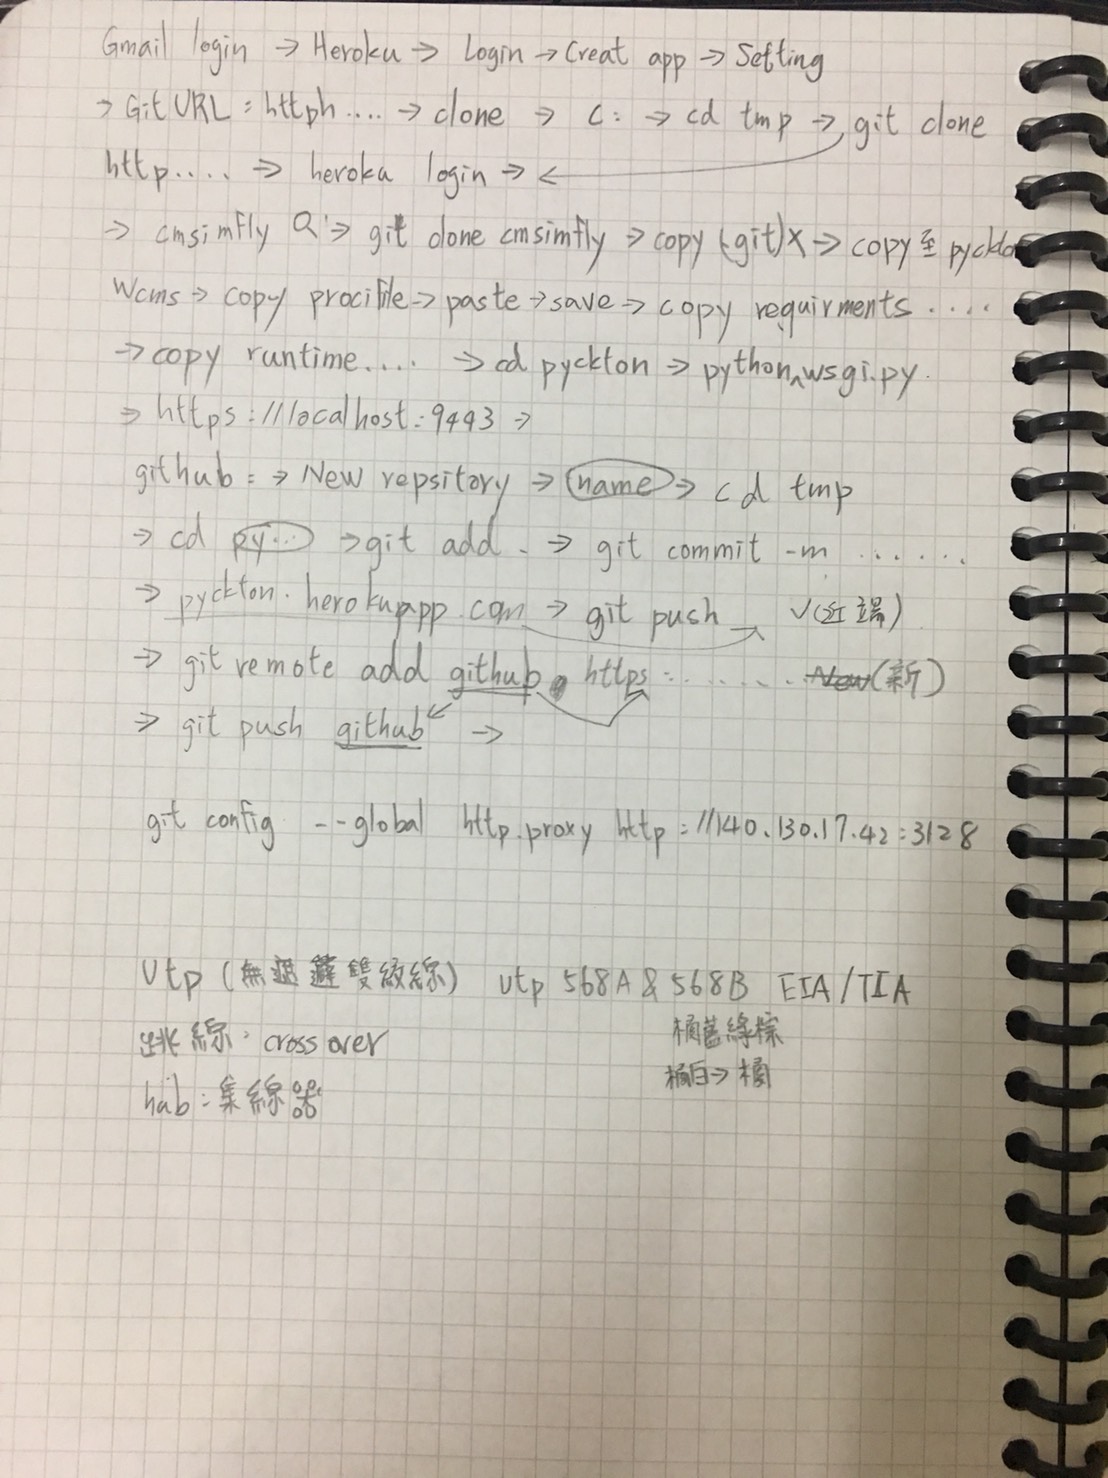 Gmail login → Heroku → Login → Creat app → Setting
→ Git URL : httph .... → clone → C: → cd tmp → git clone
http.... → heroka login → ←
→ cmsimfly Q → git clone cmsimfly → copy (.git)X → copy至 pyckto
Wcms → copy procifile → paste → save → copy requirments ....
→ copy runtime.... → cd pyckton → python wsgi.py.
→ https://localhost:9443 →
github : → New repsitory → name → cd tmp
→ cd py... → git add . → git commit -m ......
→ pyckton.herokuapp.com → git push V(近端)
→ git remote add github https: ....... New(新)
→ git push github →
git config --global http.proxy http://140.130.17.42:3128
Utp (無遮蔽雙絞線) utp 568A & 568B EIA/TIA
跳線: cross over 橘藍綠棕
橘白→橘
hub: 集線器